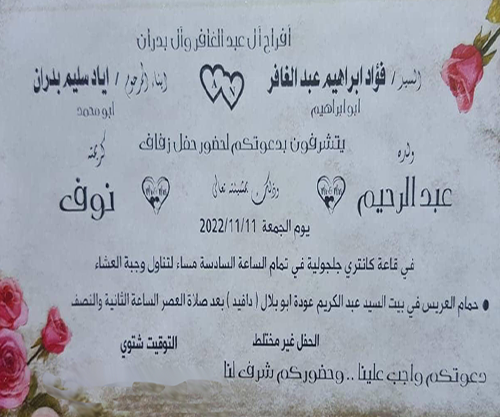 أفراح آل عبد الغافر وآل بدران
السيد / فؤاد ابراهيم عبد الغافر ابناء المرحوم / اياد سليم بدران
ابو ابراهيم ابو محمد
يتشرفون بدعوتكم لحضور حفل زفاف
ولده كريمته
عبد الرحيم وذلك بمشيئة تعالى نوف
يوم الجمعة 2022/11/11
في قاعة كانتري جلجولية في تمام الساعة السادسة مساء لتناول وجبة العشاء
• حمام العريس في بيت السيد عبد الكريم عودة ابو بلال ( دافيد ) بعد صلاة العصر الساعة الثانية والنصف
الحفل غير مختلط التوقيت شتوي
دعوتكم واجب علينا .. وحضوركم شرف لنا